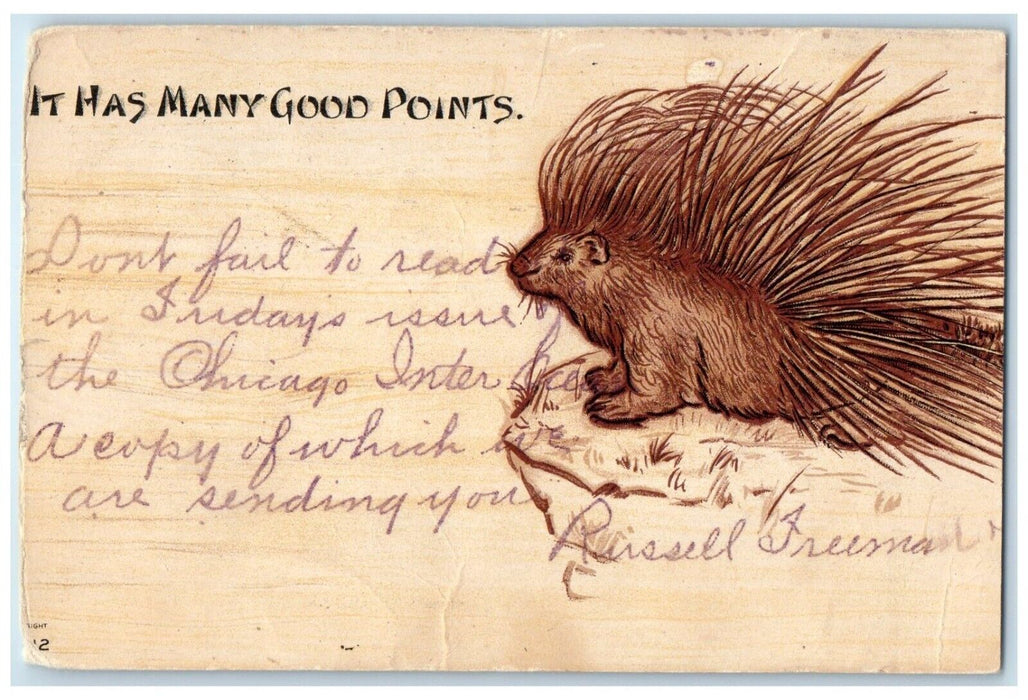 IT HAS MANY GOOD POINTS.
Dont fail to read
in Fridays issue of
the Chicago Inter
A copy of which we
are sending you
Russell Freeman
RIGHT
12